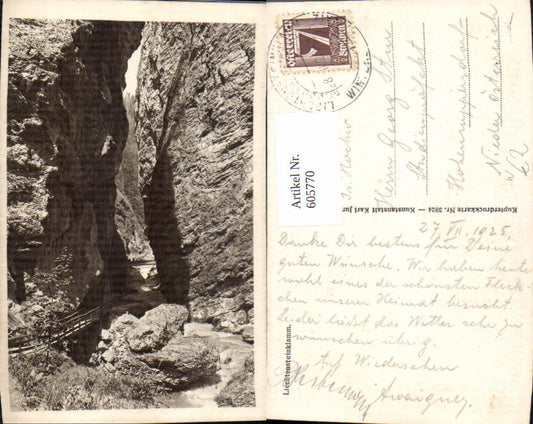 Liechtensteinklamm.
Artikel Nr.
605770
österreich
7
Groschen
Kupferdruckkarte Nr. 3924 — Kunstanstalt Karl Jur
Herrn Georg
Hohenruppersdorf
Nieder Österreich
27. VII. 1925.
Danke Dir bestens für Deine
guten Wünsche. Wir haben heute
wohl eines der schönsten Fleck-
chen unserer Heimat besucht
Leider lässt das Wetter sehr zu
wünschen übrig.
Auf Wiedersehen